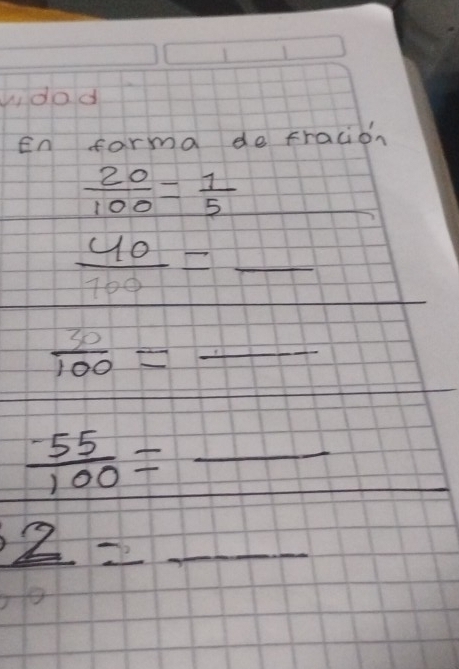 vidad
En forma de fración
20/100 = 1/5
40/100 = ___
30/100 = ___
55/100 = ___
2 = ___